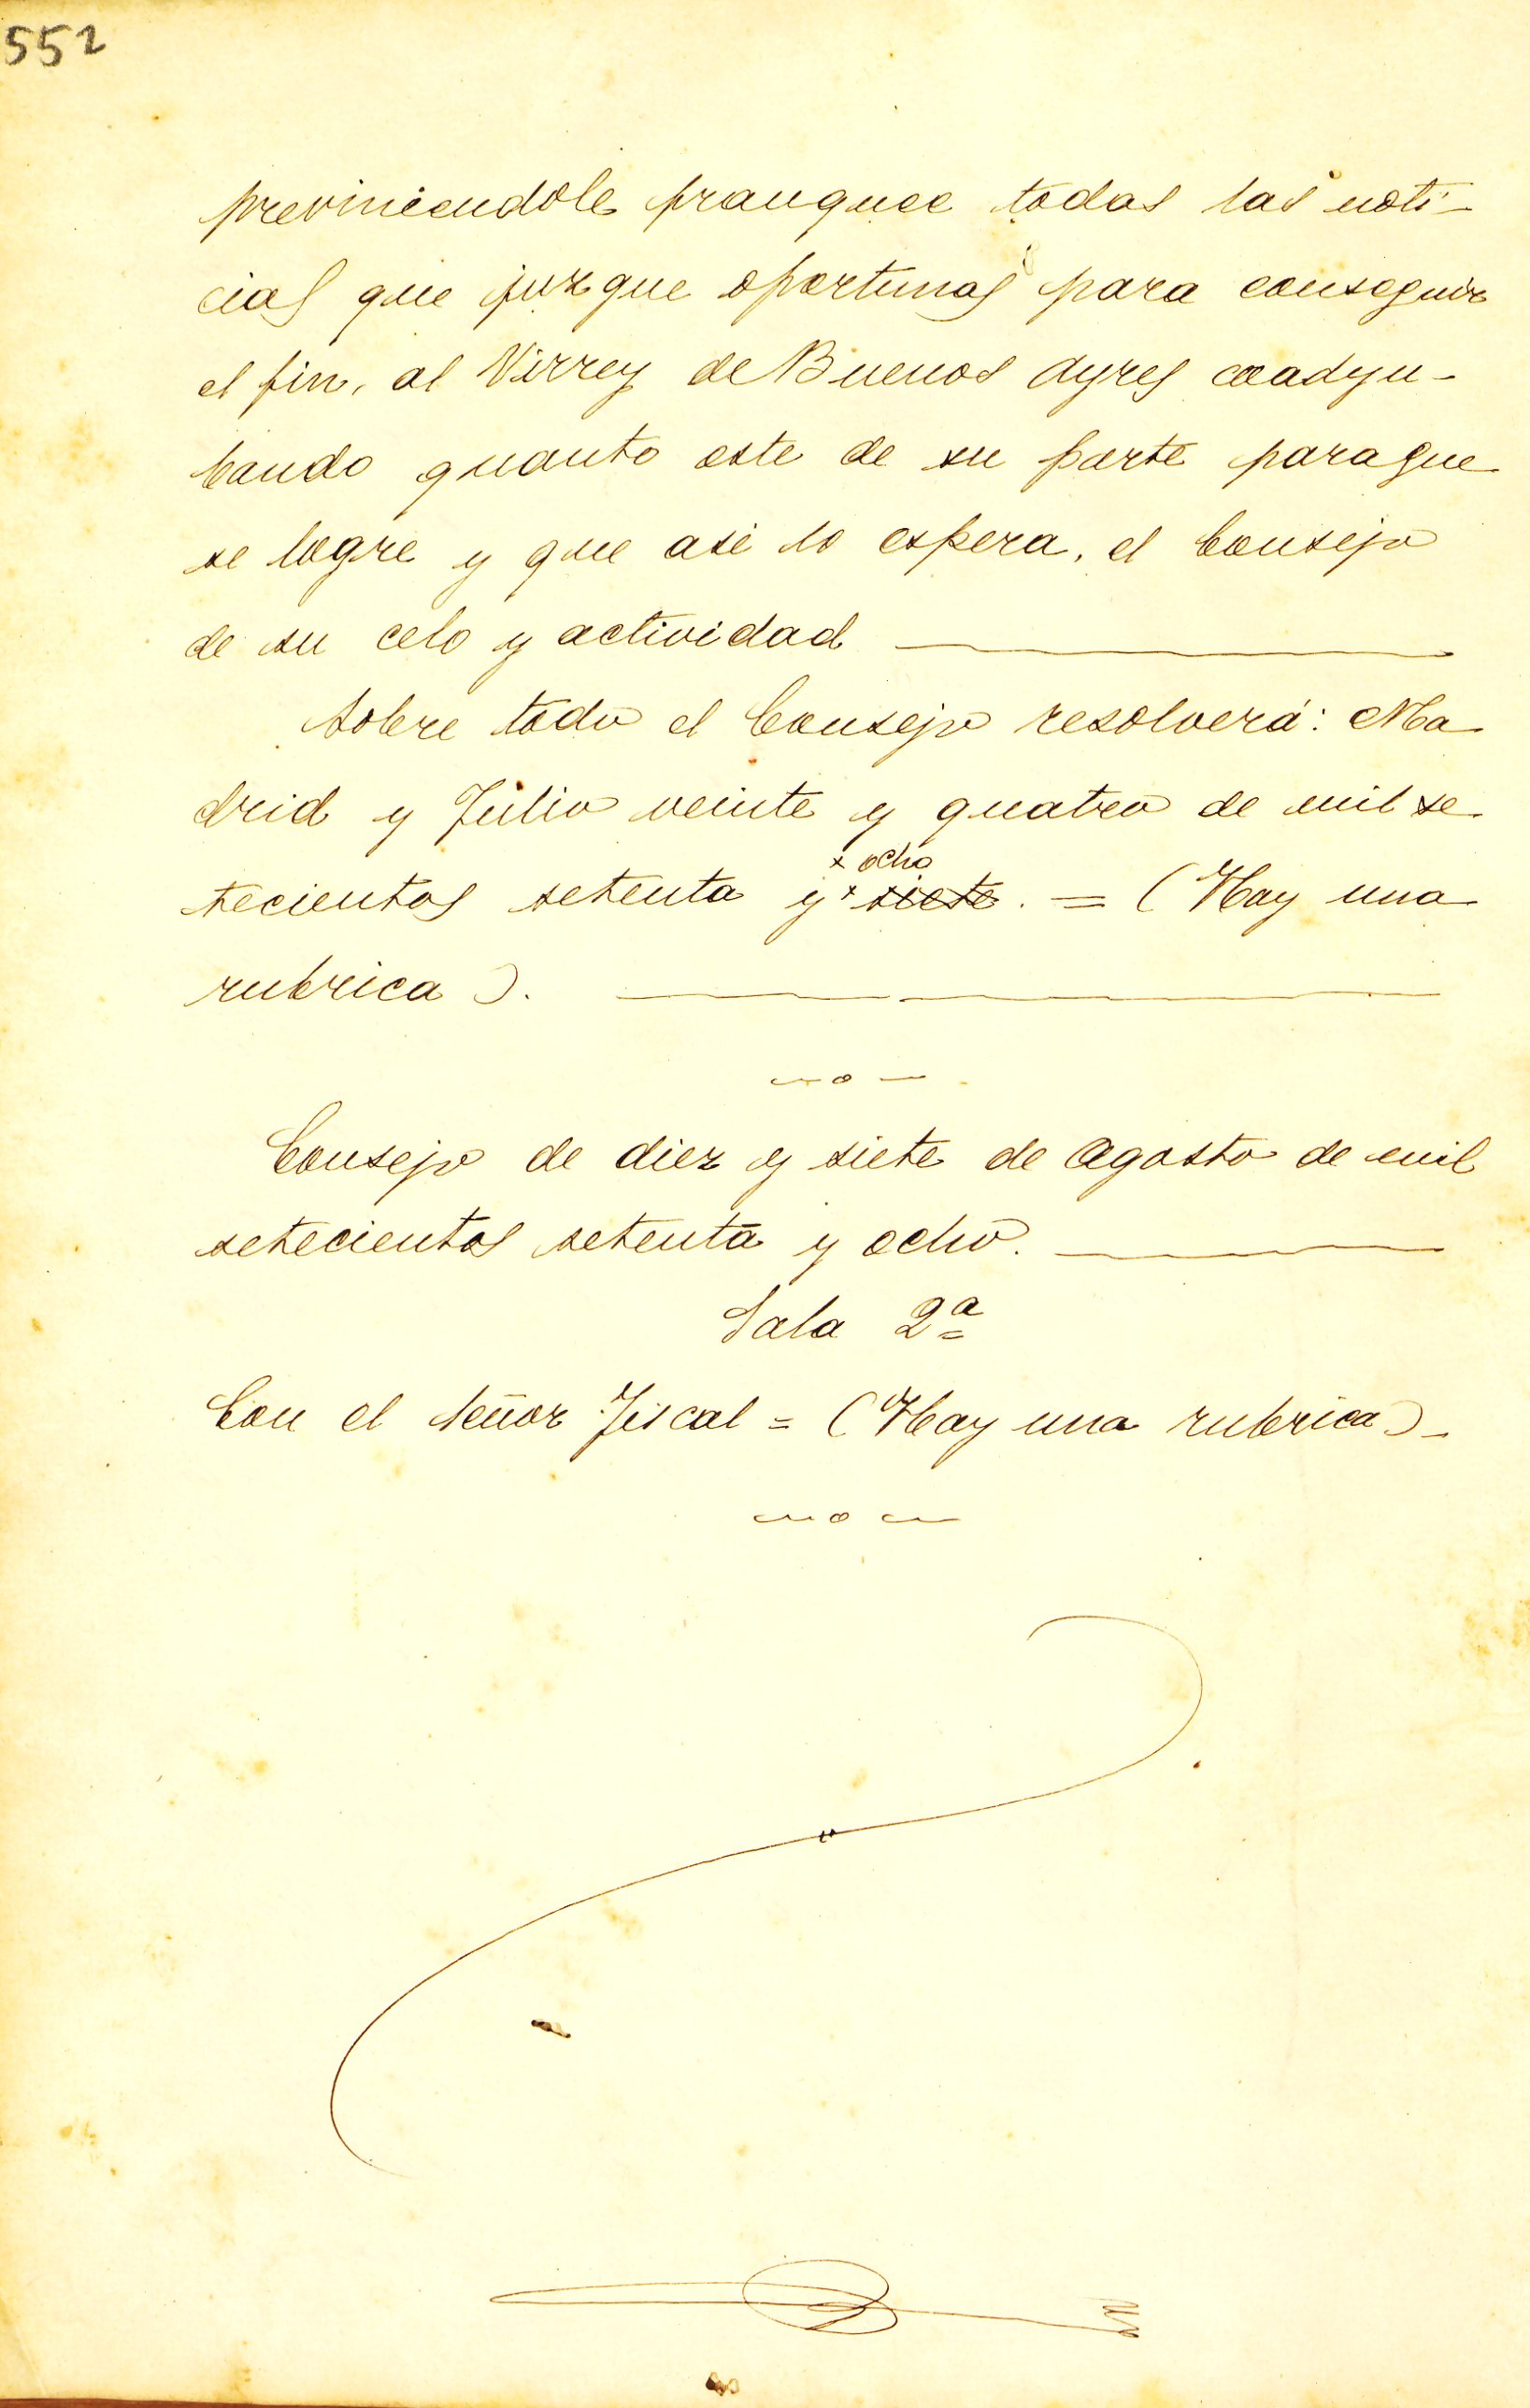 552
previniendole franquee todas las noti-
cias que juzgue oportunas para conseguir
el fin, al Virrey de Buenos Ayres coadyu-
bando quanto este de su parte paraque
se logre y que asi lo espera, el Consejo
de su celo y actividad
Sobre todo el Consejo resolverá: Ma
drid y Julio veinte y quatro de mil se
x ocho
tecientos setenta y x siete. = (Hay una
rubrica).
Consejo de diez y siete de Agosto de mil
setecientos setenta y ocho.
Sala 2ª
Con el Señor Fiscal = (Hay una rubrica)-